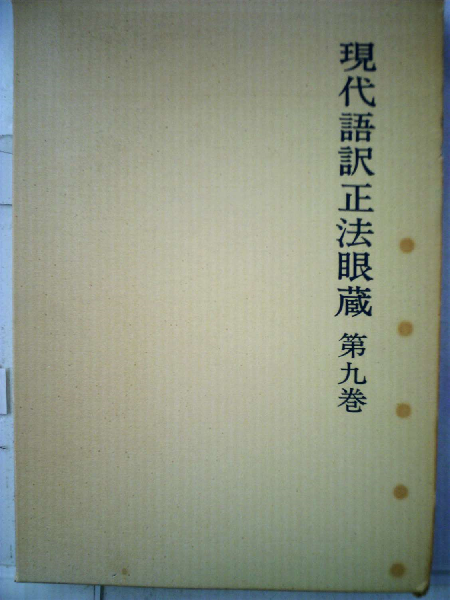 現代語訳正法眼蔵 第九巻